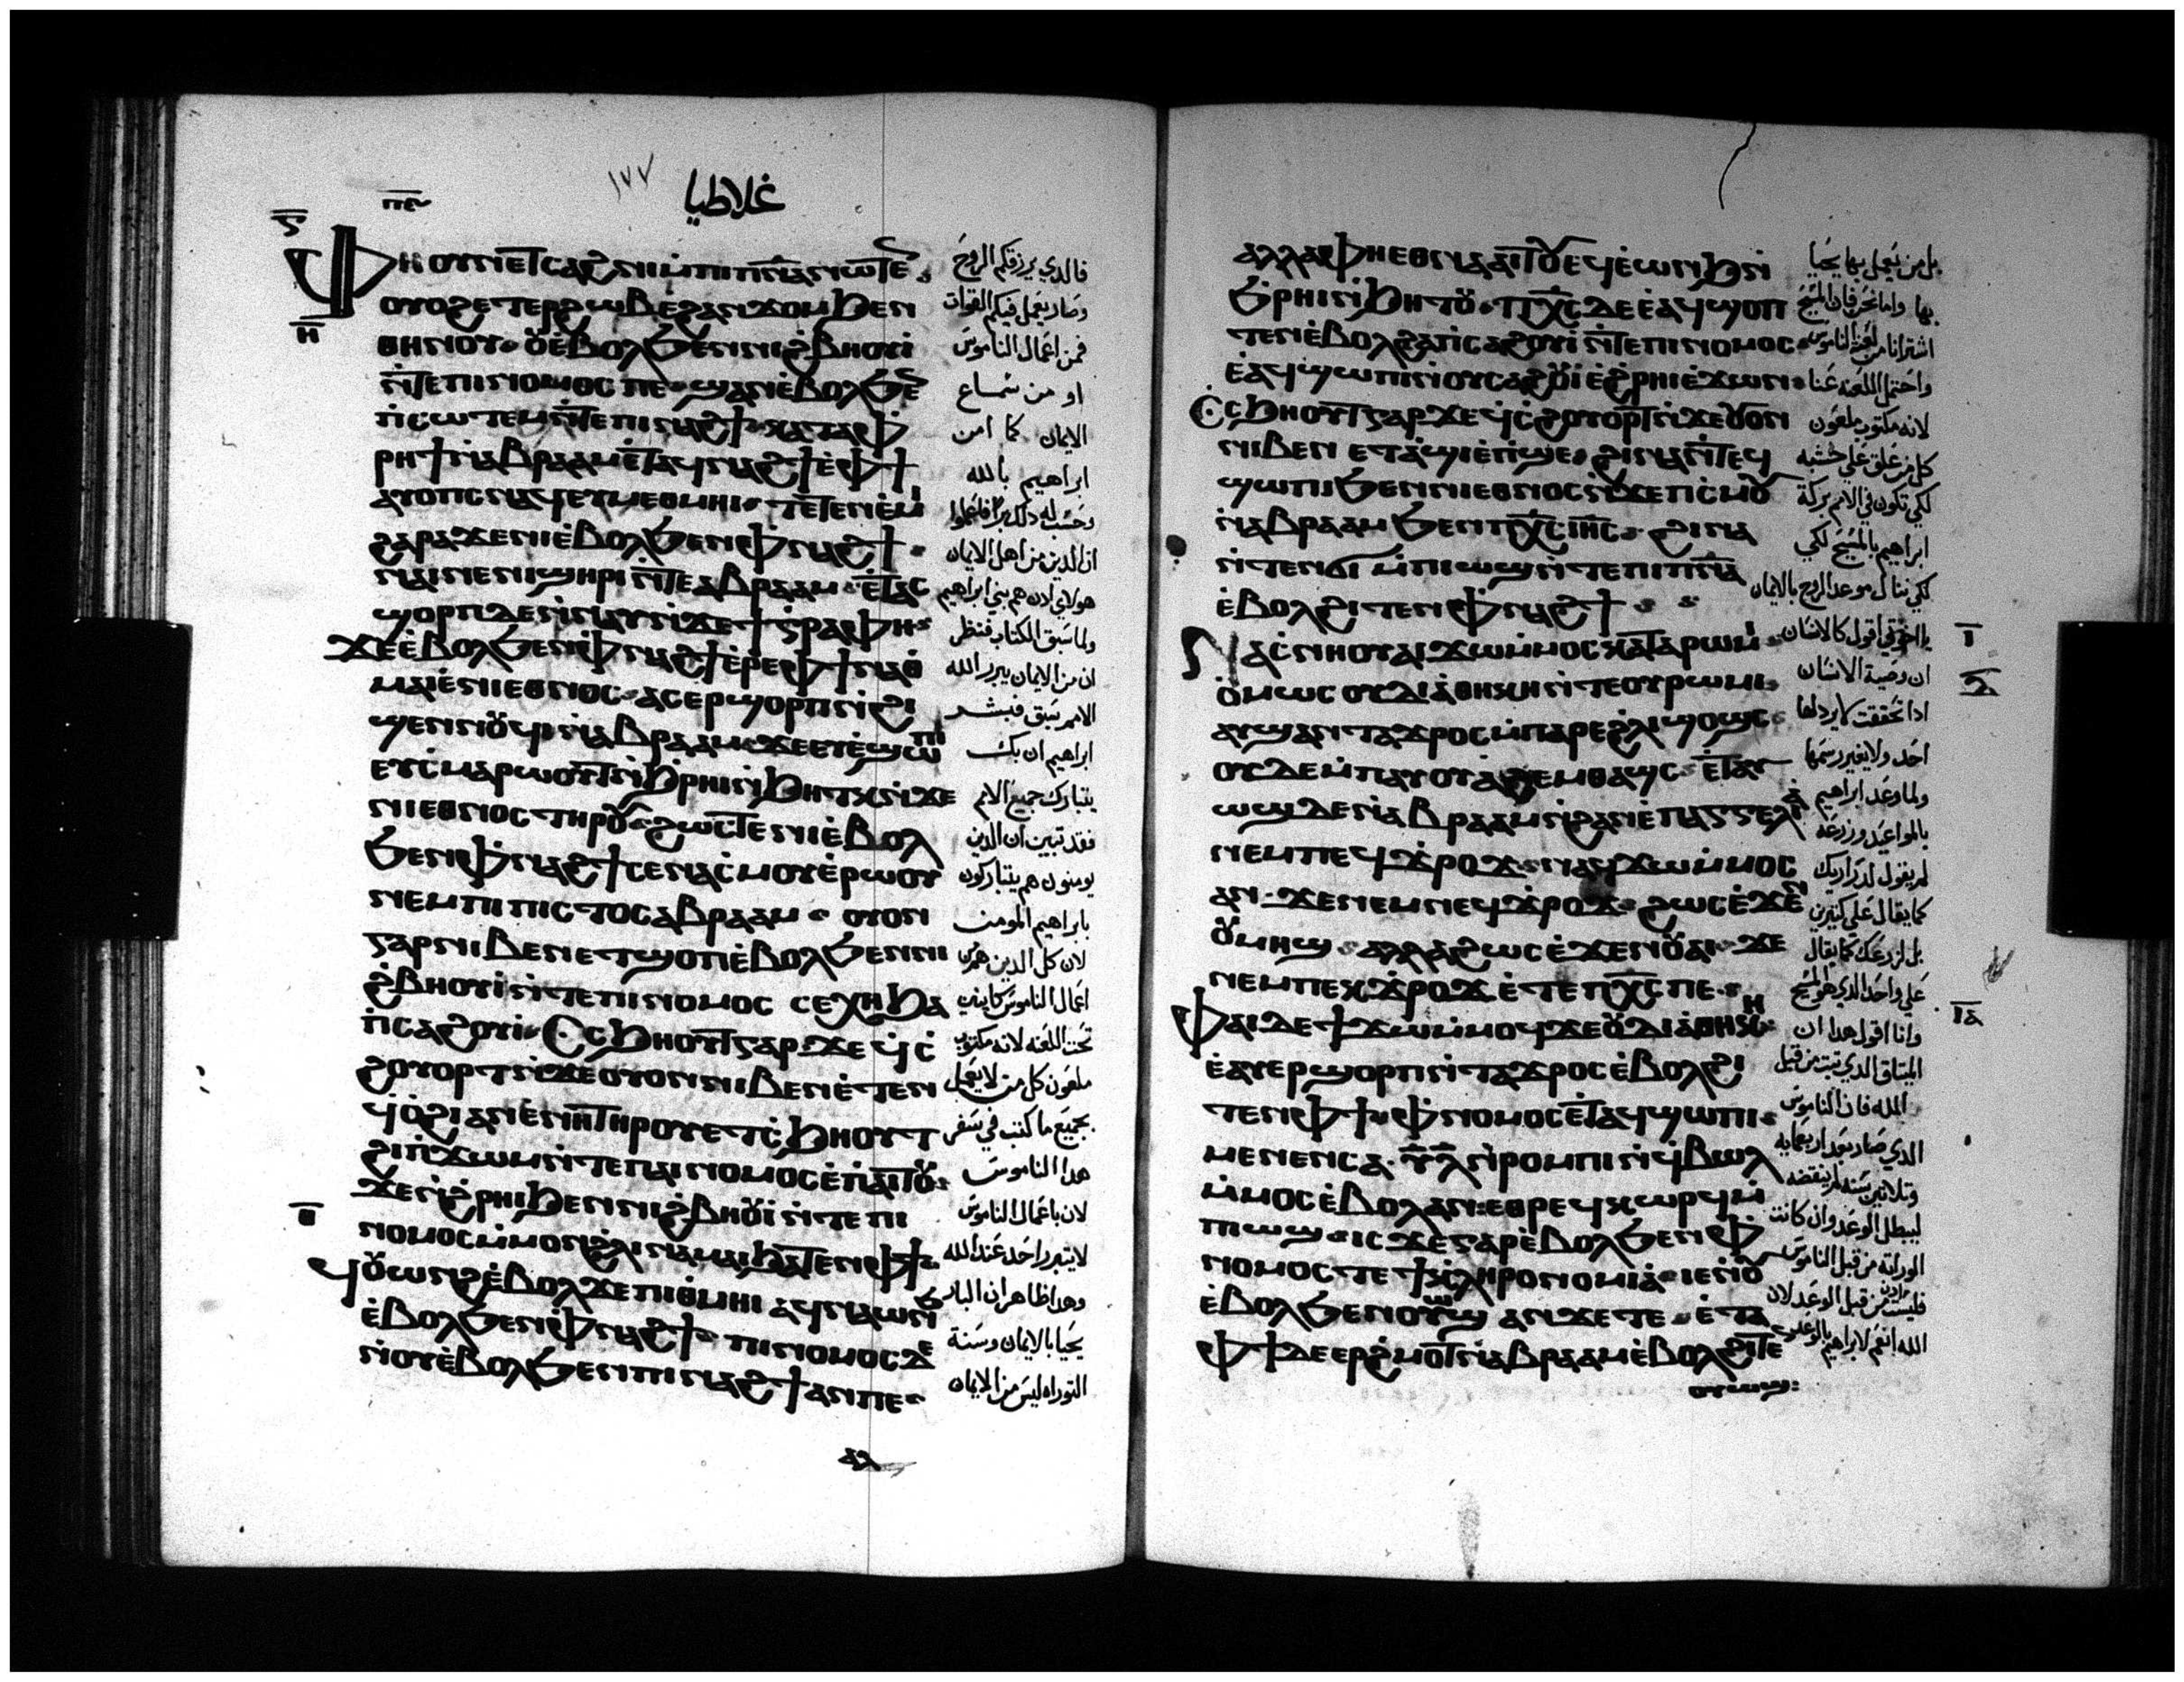 غلاطيا
١٧٧
Ⲫⲏ ⲟⲩⲛ ⲉⲧⲥⲁϩⲛⲓ ⲙ̇ⲡⲓⲡ̅ⲛ̅ⲁ̅ ⲛⲱⲧⲉⲛ
ⲟⲩⲟϩ ⲉⲧⲉⲣϩⲱⲃ ⲉϩⲁⲛϫⲟⲙ ϧⲉⲛ
ⲑⲏⲛⲟⲩ ⲟⲩⲉ̇ⲃⲟⲗ ϧⲉⲛ ⲛⲓϩ̇ⲃⲏⲟⲩⲓ
ⲛ̇ⲧⲉ ⲡⲓⲛⲟⲙⲟⲥ ⲡⲉ ϣⲁⲛ ⲉ̇ⲃⲟⲗ ϧⲉⲛ
ⲡ̇ⲥⲱⲧⲉⲙ ⲛ̇ⲧⲉ ⲡⲓⲛⲁϩϯ ⲕⲁⲧⲁ ⲫ̇
ⲣⲏϯ ⲛ̇ⲁⲃⲣⲁⲁⲙ ⲉ̇ⲧⲁϥⲛⲁϩϯ ⲉ̇ⲫϯ
ⲁⲩⲟⲡⲥ ⲛⲁϥ ⲉⲩⲙⲉⲑⲙⲏⲓ ⲧⲉⲧⲉⲛⲉ̇ⲙⲓ
ϩⲁⲣⲁ ϫⲉ ⲛⲓⲉ̇ⲃⲟⲗ ϧⲉⲛ ⲫ̇ⲛⲁϩϯ
ⲛⲁⲓ ⲛⲉ ⲛⲓϣⲏⲣⲓ ⲛ̇ⲧⲉ ⲁⲃⲣⲁⲁⲙ ⲉ̇ⲧⲁⲥ
ϣⲟⲣⲡ ⲇⲉ ⲛ̇ⲛⲁⲩ ⲛ̇ϫⲉ ϯⲅ̇ⲣⲁⲫⲏ
ϫⲉ ⲉ̇ⲃⲟⲗ ϧⲉⲛ ⲫ̇ⲛⲁϩϯ ⲉ̇ⲣⲉ ⲫϯ ⲛⲁⲑ
ⲙⲁⲓⲉ̇ ⲛⲓⲉⲑⲛⲟⲥ ⲁⲥⲉⲣϣⲟⲣⲡ ⲛ̇ϩⲓ
ϣⲉⲛⲛⲟⲩϥⲓ ⲛ̇ⲁⲃⲣⲁⲁⲙ ϫⲉ ⲉⲩⲉ̇ϣⲱⲡⲓ
ⲉⲩⲥ̇ⲙⲁⲣⲱⲟⲩⲧ ⲛ̇ϧ̇ⲣⲏⲓ ⲛ̇ϧⲏⲧⲕ ⲛ̇ϫⲉ
ⲛⲓⲉⲑⲛⲟⲥ ⲧⲏⲣⲟⲩ ϩⲱⲥⲧⲉ ⲛⲓⲉ̇ⲃⲟⲗ
ϧⲉⲛ ⲫ̇ⲛⲁϩϯ ⲥⲉⲛⲁⲥ̇ⲙⲟⲩ ⲉ̇ⲣⲱⲟⲩ
ⲛⲉⲙ ⲡⲓⲡⲓⲥⲧⲟⲥ ⲁⲃⲣⲁⲁⲙ ⲟⲩⲟⲛ
ⲅⲁⲣ ⲛⲓⲃⲉⲛ ⲉⲧϣⲟⲡ ⲉ̇ⲃⲟⲗ ϧⲉⲛ ⲛⲓ
ϩ̇ⲃⲏⲟⲩⲓ ⲛ̇ⲧⲉ ⲡⲓⲛⲟⲙⲟⲥ ⲥⲉⲭⲏ ϧⲁ
ⲡ̇ⲥⲁϩⲟⲩⲓ ⲥ̇ϧⲏⲟⲩⲧ ⲅⲁⲣ ϫⲉ ϥ̇ⲥ̇
ϩⲟⲩⲟⲣⲧ ⲛ̇ϫⲉ ⲟⲩⲟⲛ ⲛⲓⲃⲉⲛ ⲉ̇ⲧⲉⲛ
ϥ̇ⲟ̇ϩⲓ ⲁⲛ ⲉ̇ⲛⲏ ⲧⲏⲣⲟⲩ ⲉⲧⲥ̇ϧⲏⲟⲩⲧ
ϩⲓ ⲡ̇ϫⲱⲙ ⲛ̇ⲧⲉ ⲡⲁⲓⲛⲟⲙⲟⲥ ⲉ̇ⲡ̇ⲁⲓⲧⲟⲩ
ϫⲉ ⲛ̇ϩ̇ⲣⲏⲓ ϧⲉⲛ ⲛⲓϩ̇ⲃⲏⲟⲩⲓ ⲛ̇ⲧⲉ ⲡⲓ
ⲛⲟⲙⲟⲥ ⲙ̇ⲙⲟⲛ ϩ̇ⲗⲓ ⲛⲁⲙⲁⲓ ϧⲁⲧⲉⲛ ⲫϯ
ϥⲟⲩⲱⲛϩ ⲉ̇ⲃⲟⲗ ϫⲉ ⲡⲓⲑ̇ⲙⲏⲓ ⲁϥⲛⲁⲱⲛϧ
ⲉ̇ⲃⲟⲗ ϧⲉⲛ ⲫ̇ⲛⲁϩϯ ⲡⲓⲛⲟⲙⲟⲥ ⲇⲉ
ⲛ̇ⲟⲩⲉ̇ⲃⲟⲗ ϧⲉⲛ ⲡⲓⲛⲁϩϯ ⲁⲛ ⲡⲉ
فالدي يرزقكم الروح
وصار يعمل فيكم القوات
فمن اعمال الناموس
او من سماع
الايمان كما امن
ابراهيم بالله
وحسب له ذلك برا فاعلموا
ان الدين من اهل الايمان
هولاي ادن هم بني ابراهيم
ولما سبق الكتاب فنظر
ان من الايمان يبرر الله
الامم سبق فبشر
ابراهيم ان بك
يتبارك جميع الامم
فقد تبين ان الدين
يومنون هم يتباركون
بابراهيم المومن
لان كل الدين هم من
اعمال الناموس كاينين
تحت اللعنه لانه مكتوب
ملعون كل من لا يعمل
بجميع ما كتب في سفر
هدا الناموس
لان باعمال الناموس
لا يتبرر احد عند الله
وهدا ظاهر ان البار
يحيا بالايمان وسنة
التوراه ليس من الايمان
ⲁⲗⲗⲁ ⲫⲏ ⲉⲑⲛⲁⲁⲓⲧⲟⲩ ⲉϥⲉ̇ⲱⲛϧ ⲛ̇
ϧ̇ⲣⲏⲓ ⲛ̇ϧⲏⲧⲟⲩ ⲡⲭ̅ⲥ̅ ⲇⲉ ⲉ̇ⲁϥϣⲟⲡ
ⲧⲉⲛ ⲉ̇ⲃⲟⲗ ϩⲁ ⲡ̇ⲥⲁϩⲟⲩⲓ ⲛ̇ⲧⲉ ⲡⲓⲛⲟⲙⲟⲥ
ⲉ̇ⲁϥϣⲱⲡⲓ ⲛ̇ⲟⲩⲥⲁϩⲟⲩⲓ ⲉ̇ϩ̇ⲣⲏⲓ ⲉ̇ϫⲱⲛ
ⲥ̇ϧⲏⲟⲩⲧ ⲅⲁⲣ ϫⲉ ϥ̇ⲥ̇ϩⲟⲩⲟⲣⲧ ⲛ̇ϫⲉ ⲟⲩⲟⲛ
ⲛⲓⲃⲉⲛ ⲉⲧⲁ̇ϣⲓ ⲉ̇ⲡ̇ϣⲉ ϩⲓⲛⲁ ⲛ̇ⲧⲉϥ
ϣⲱⲡⲓ ϧⲉⲛ ⲛⲓⲉⲑⲛⲟⲥ ⲛ̇ϫⲉ ⲡ̇ⲥ̇ⲙⲟⲩ
ⲛ̇ⲁⲃⲣⲁⲁⲙ ϧⲉⲛ ⲡⲭ̅ⲥ̅ ⲓⲏ̅ⲥ̅ ϩⲓⲛⲁ
ⲛ̇ⲧⲉⲛϭⲓ ⲙ̇ⲡⲓⲱϣ ⲛ̇ⲧⲉ ⲡⲓⲡ̅ⲛ̅ⲁ̅
ⲉ̇ⲃⲟⲗ ϩⲓⲧⲉⲛ ⲫ̇ⲛⲁϩϯ
Ⲛⲁⲥ̇ⲛⲏⲟⲩ ⲁⲓϫⲱ ⲙ̇ⲙⲟⲥ ⲕⲁⲧⲁ ⲣⲱⲙⲓ
ⲟ̇ⲙⲱⲥ ⲟⲩⲇⲓⲁ̇ⲑⲏⲕⲏ ⲛ̇ⲧⲉ ⲟⲩⲣⲱⲙⲓ
ⲁⲩϣⲁⲛⲧⲁϫⲣⲟⲥ ⲙ̇ⲡⲁⲣⲉ ϩ̇ⲗⲓ ϣⲟϣⲥ
ⲟⲩⲇⲉ ⲙ̇ⲡⲁⲩⲟⲩⲁϩⲉⲙ ⲑⲁϣⲥ ⲉ̇ⲧⲁⲩ
ⲱϣ ⲇⲉ ⲛ̇ⲁⲃⲣⲁⲁⲙ ⲛ̇ϩⲁⲛⲉ̇ⲡⲁⲅⲅⲉⲗⲓⲁ
ⲛⲉⲙ ⲡⲉϥϫ̇ⲣⲟϫ ⲛⲁϥϫⲱ ⲙ̇ⲙⲟⲥ
ⲁⲛ ϫⲉ ⲛⲉⲙ ⲛⲉϥϫ̇ⲣⲟϫ ϩⲱⲥ ⲉ̇ϫⲉⲛ
ⲟⲩⲙⲏϣ ⲁⲗⲗⲁ ϩⲱⲥ ⲉ̇ϫⲉⲛ ⲟⲩⲁⲓ ϫⲉ
ⲛⲉⲙ ⲡⲉⲕϫ̇ⲣⲟϫ ⲉ̇ⲧⲉ ⲡⲭ̅ⲥ̅ ⲡⲉ
Ⲫⲁⲓ ⲇⲉ ϯϫⲱ ⲙ̇ⲙⲟϥ ϫⲉ ⲟⲩⲇⲓⲁ̇ⲑⲏⲕⲏ
ⲉ̇ⲁⲩⲉⲣϣⲟⲣⲡ ⲛ̇ⲧⲁϫⲣⲟⲥ ⲉ̇ⲃⲟⲗ ϩⲓ
ⲧⲉⲛ ⲫϯ ⲫ̇ⲛⲟⲙⲟⲥ ⲉ̇ⲧⲁϥϣⲱⲡⲓ
ⲙⲉⲛⲉⲛⲥⲁ ⲩ̅ⲗ̅ ⲛ̇ⲣⲟⲙⲡⲓ ⲛ̇ϥ̇ⲃⲱⲗ
ⲙ̇ⲙⲟⲥ ⲉ̇ⲃⲟⲗ ⲁⲛ ⲉⲑⲣⲉϥⲕⲱⲣϥ ⲙ̇
ⲡⲓⲱϣ ⲓⲥϫⲉ ⲅⲁⲣ ⲉ̇ⲃⲟⲗ ϧⲉⲛ ⲫ̇
ⲛⲟⲙⲟⲥ ⲧⲉ ϯⲕ̇ⲗⲏⲣⲟⲛⲟⲙⲓⲁ̇ ⲓⲉ ⲛ̇ⲟⲩ
ⲉ̇ⲃⲟⲗ ϧⲉⲛ ⲟⲩⲱϣ ⲁⲛ ϫⲉ ⲧⲉ ⲉ̇ⲧⲁ
ⲫϯ ⲇⲉ ⲉⲣϩ̇ⲙⲟⲧ ⲛ̇ⲁⲃⲣⲁⲁⲙ ⲉ̇ⲃⲟⲗ ϩⲓⲧⲉⲛ
ⲟⲩⲱϣ
بل من يعمل بها يحيا
بها واما نحن فان المسيح
اشترانا من لعنة الناموس
واحتمل اللعنه عنا
لانه مكتوب ملعون
كل من علق علي خشبه
لكي تكون في الامم بركة
ابراهيم بالمسيح لكي
لكي ننال موعد الروح بالايمان
يا اخوتي اقول كالانسان
ان وصية الانسان
ادا تحققت لا يردلها
احد ولا يغير رسمها
ولما وعد ابراهيم
بالمواعيد وزرعه
لم يقول لدراريك
كما يقال علي كتيرين
بل لزرعك كما يقال
علي واحد الدي هو المسيح
وانا اقول هدا ان
الميتاق الدي تبت من قبل
الله فان الناموس
الدي صار بعد اربعمايه
وتلاتين سنه لم ينقضه
ليبطل الوعد وان كانت
الوراته من قبل الناموس
فليست من قبل الوعد لان
الله انعم لابراهيم بالوعد